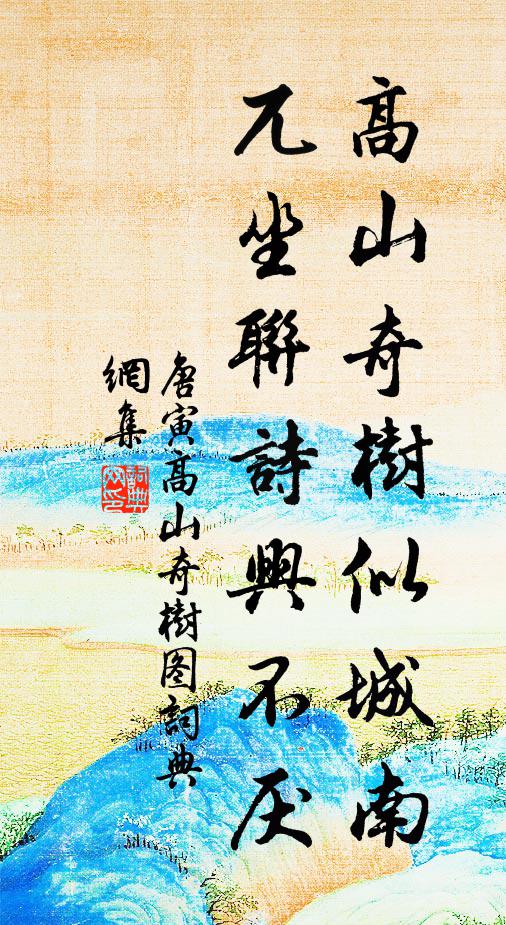 高山奇樹似城南
兀坐聯詩興不厌
唐寅高山奇樹图詞典
網集